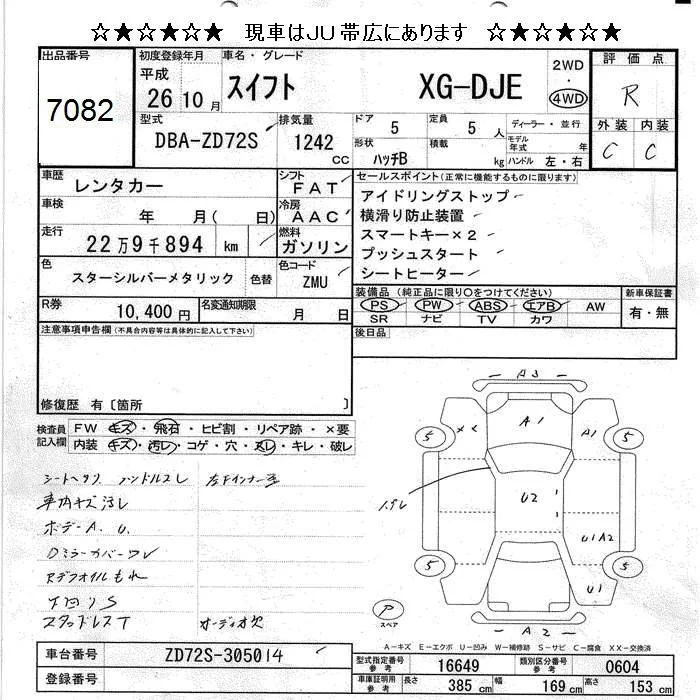 ☆★☆★☆★ 現車はJU帯広にあります ☆★☆★☆★
出品番号 初度登録年月 車名・グレード 評価点
7082 平成 26 10月 スイフト XG-DJE 2WD・4WD R
型式 DBA-ZD72S 排気量 1242 CC ドア 5 定員 5 人 ディーラー・並行 外装 内装
形状 ハッチB 積載 kg モデル年式 年 ハンドル 左・右 C C
車歴 レンタカー シフト FAT セールスポイント(正常に機能するものに限ります)
車検 年 月( 日) 冷房 AAC アイドリングストップ
横滑り防止装置
走行 22万9千894 km 燃料 ガソリン スマートキー×2
プッシュスタート
色 スターシルバーメタリック 色替 色コード ZMU シートヒーター
R券 10,400円 名変通知期限 月 日 装備品(純正品に限り○をつけてください) 新車保証書
PS PW ABS エアB AW 有・無
SR ナビ TV カワ
注意事項申告欄(不具合内容等は具体的に記入して下さい) 後日品
修復歴 有〔箇所 〕
検査員記入欄 FW キズ・飛石・ヒビ割・リペア跡・×要
内装 キズ・汚レ・コゲ・穴・スレ・キレ・破レ
シートヘタリ ハンドルスレ
車内キズ汚レ
ボデーA.U.
Dミラーカバーワレ
Rデフオイルもれ
下回りS
スタッドレスT オーディオ欠
A3
A1
A1
5
5
U2
U1A2
U1
5
5
A2
P
スペア
A-キズ E-エクボ U-凹み W-補修跡 S-サビ C-腐食 XX-交換済
車台番号 ZD72S-305014 型式指定番号 参考 16649 類別区分番号 参考 0604
登録番号 車庫証明用 参考 長さ 385 cm 幅 169 cm 高さ 153 cm